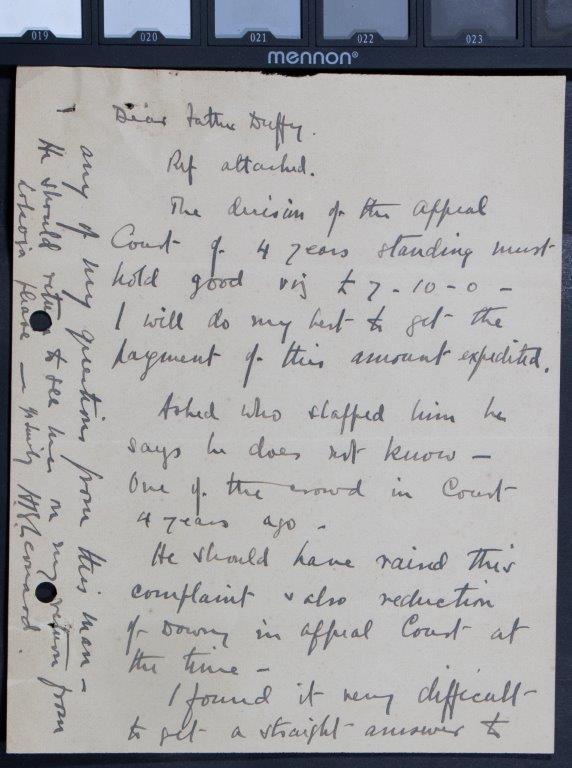 019 020 021 022 023
mennon®
Dear Father Duffy.
Ref attached.
The decision of the Appeal
Court of 4 years standing must
hold good viz £7-10-0 -
I will do my best to get the
payment of this amount expedited.
Asked who slapped him he
says he does not know -
One of the crowd in Court
4 years ago -
He should have raised this
complaint & also reduction
of Dowry in Appeal Court at
the time -
I found it very difficult
to get a straight answer to
any of my questions from this man -
He should return to see me on my return from
Lokoja please - Yours